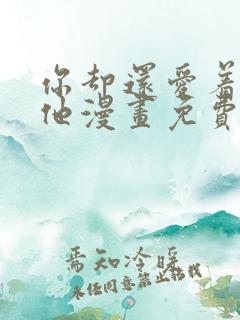 你却還愛着
他漫畫免費
焉知冷暖
未经同意禁止转载